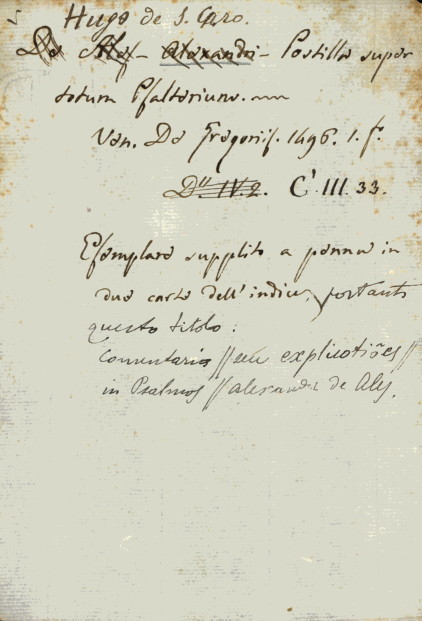 5
Hugo de S. Caro.
De Ales - Alexandri - Postilla super
totum Psalterium.
Ven. De Gregoriis. 1496. 1. f.
D'' IV. 2. C' III. 33.
Esemplare supplito a penna in
due carte dell'indice, portanti
questo titolo:
Comentaria // seu explicatiões //
in Psalmos // alexandri de Ales.